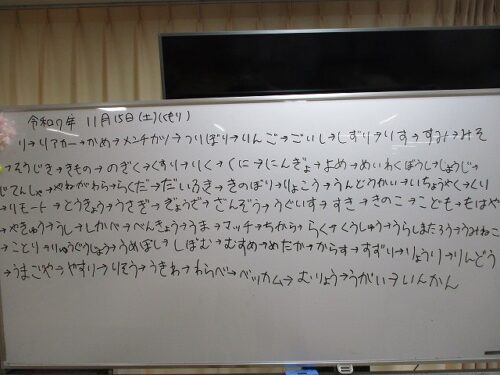 令和7年 11月15日(土)(くもり)
り→リアカー→かめ→メンチカツ→つりぼり→りんご→ごいし→しずり→りす→すみ→みそ
→そうじき→きもの→のぎく→くすり→りく→くに→にんぎょ→よめ→めいわくぼうし→しょうじ→
じてんしゃ→やねがわら→らくだ→だいろき→きのぼり→りょこう→うんどうかい→いちょう→くり
→リモート→とうきょう→うさぎ→ぎょうざ→ざんぞう→うぐいす→すき→きのこ→こども→もはや
→やきゅう→うし→しかべ→べんきょう→うま→マッチ→ちから→らく→くうしゅう→うらしまたろう→うみねこ
→ことり→りゅうぐうじょう→うめぼし→しぼむ→むすめ→めだか→からす→すずり→りょうり→りんどう
→うまごや→やすり→りそう→うきわ→わらべ→ベッカム→むりょう→うがい→いんかん